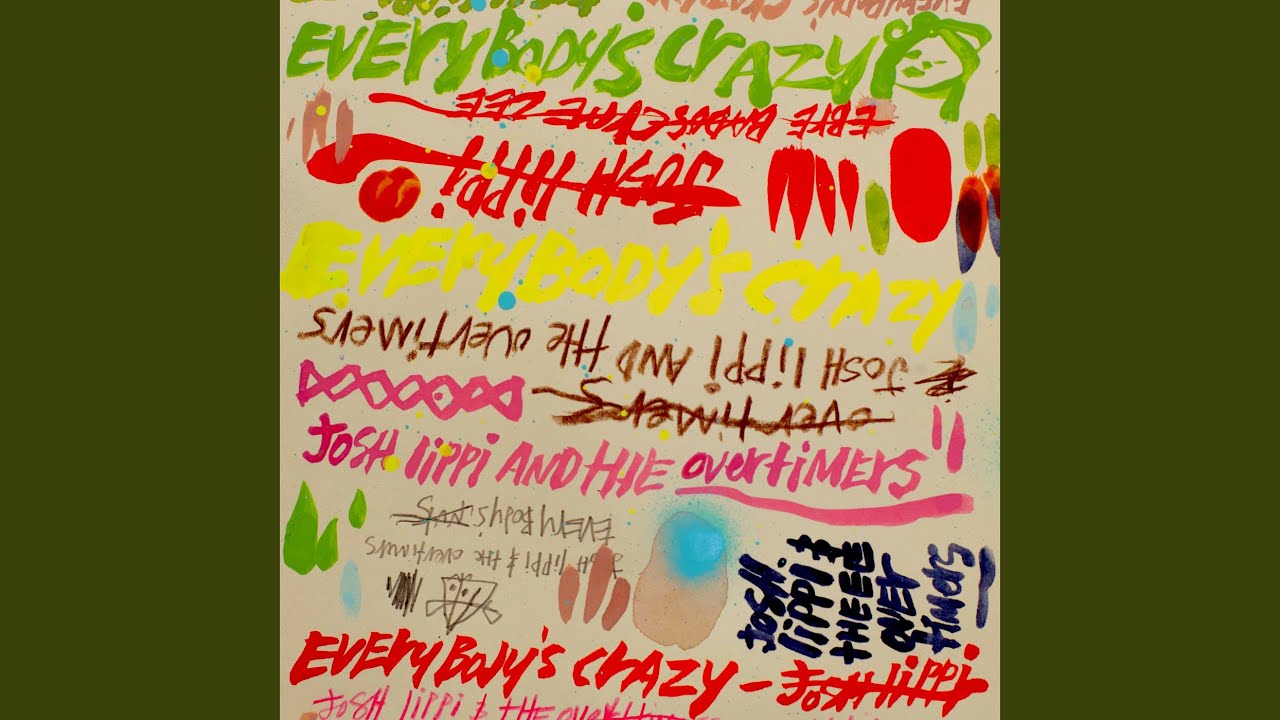 EVERYBODY'S CRAZY
EVERYBODY'S CRAZY
JOSH lippi
EVERYBODY'S CRAZY
JOSH lippi AND THE OVERTIMERS
OVERTIMERS
JOSH lippi AND THE OVERTIMERS
EVERYBODY'S
JOSH lippi & THE OVERTIMERS
JOSH
lippi &
THEEE
OVER
TIMERS
EVERYBODY'S CRAZY - JOSH lippi
JOSH lippi & THE